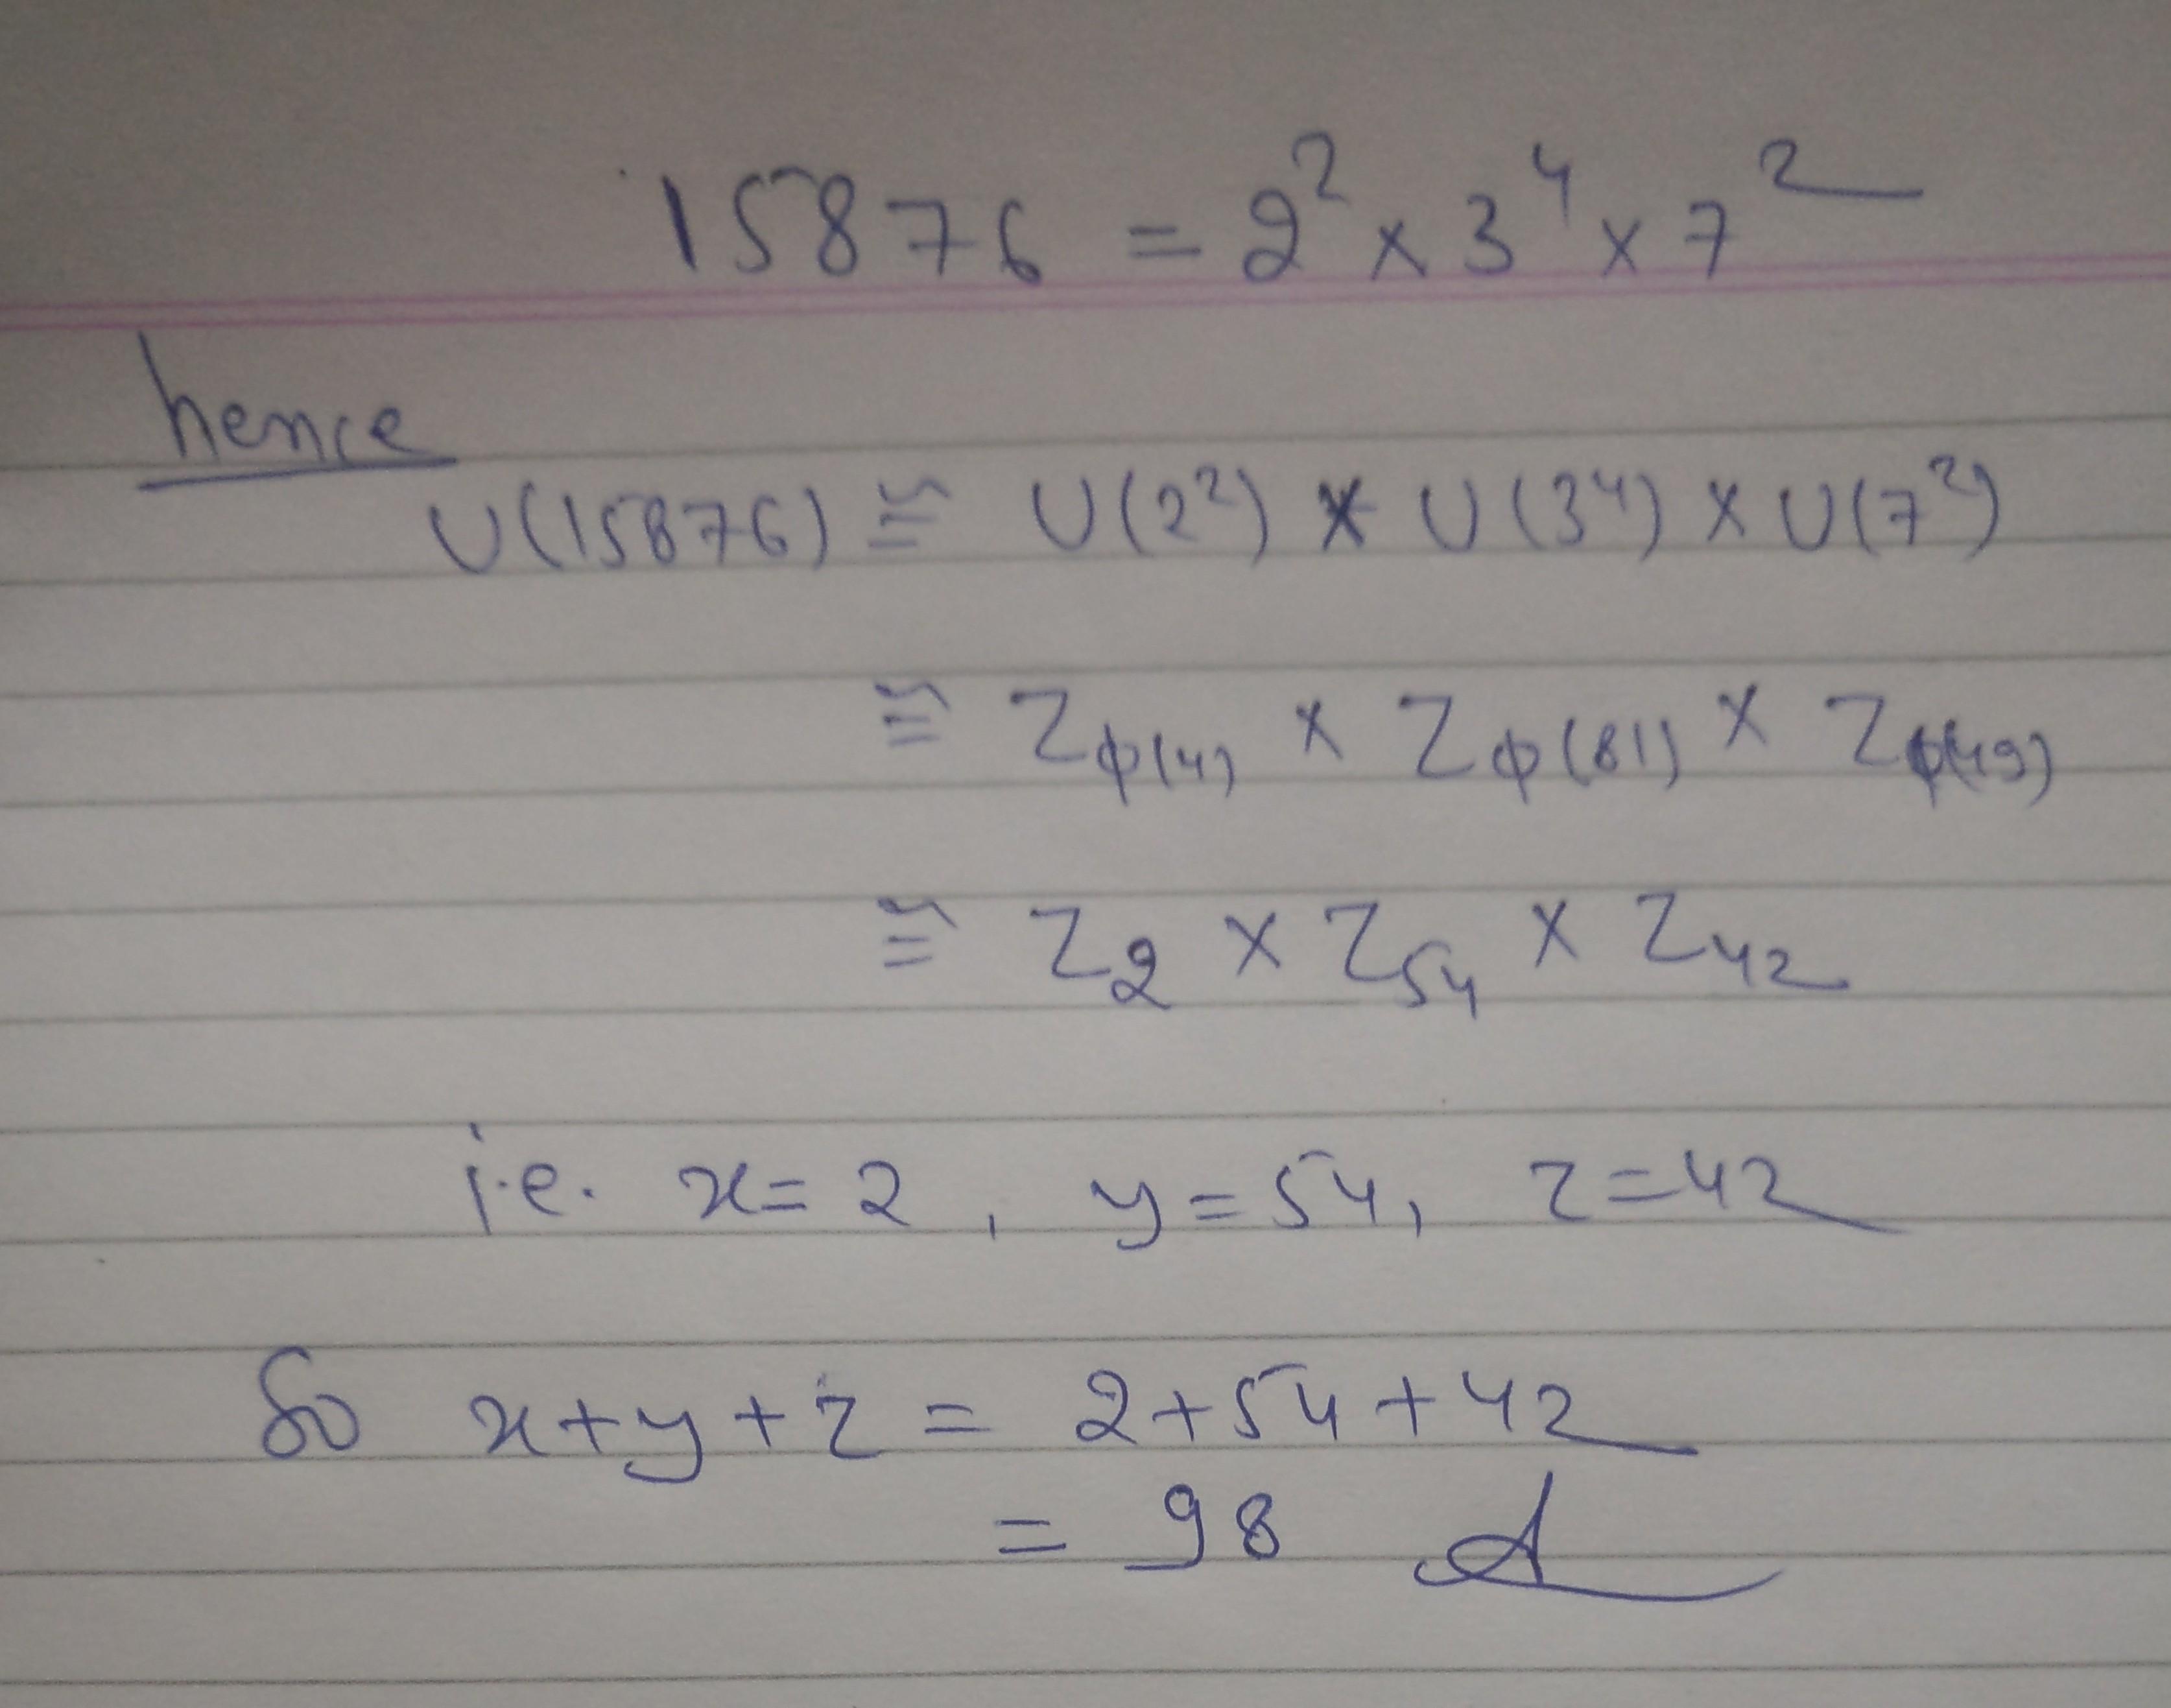 15876 = 2² × 3⁴ × 7²
hence
U(15876) ≅ U(2²) × U(3⁴) × U(7²)
≅ Z_φ(4) × Z_φ(81) × Z_φ(49)
≅ Z₂ × Z₅₄ × Z₄₂
i.e. x = 2, y = 54, z = 42
So x + y + z = 2 + 54 + 42
= 98